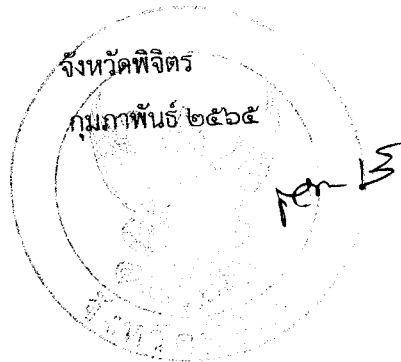 จังหวัดพิจิตร
กุมภาพันธ์ ๒๕๖๕